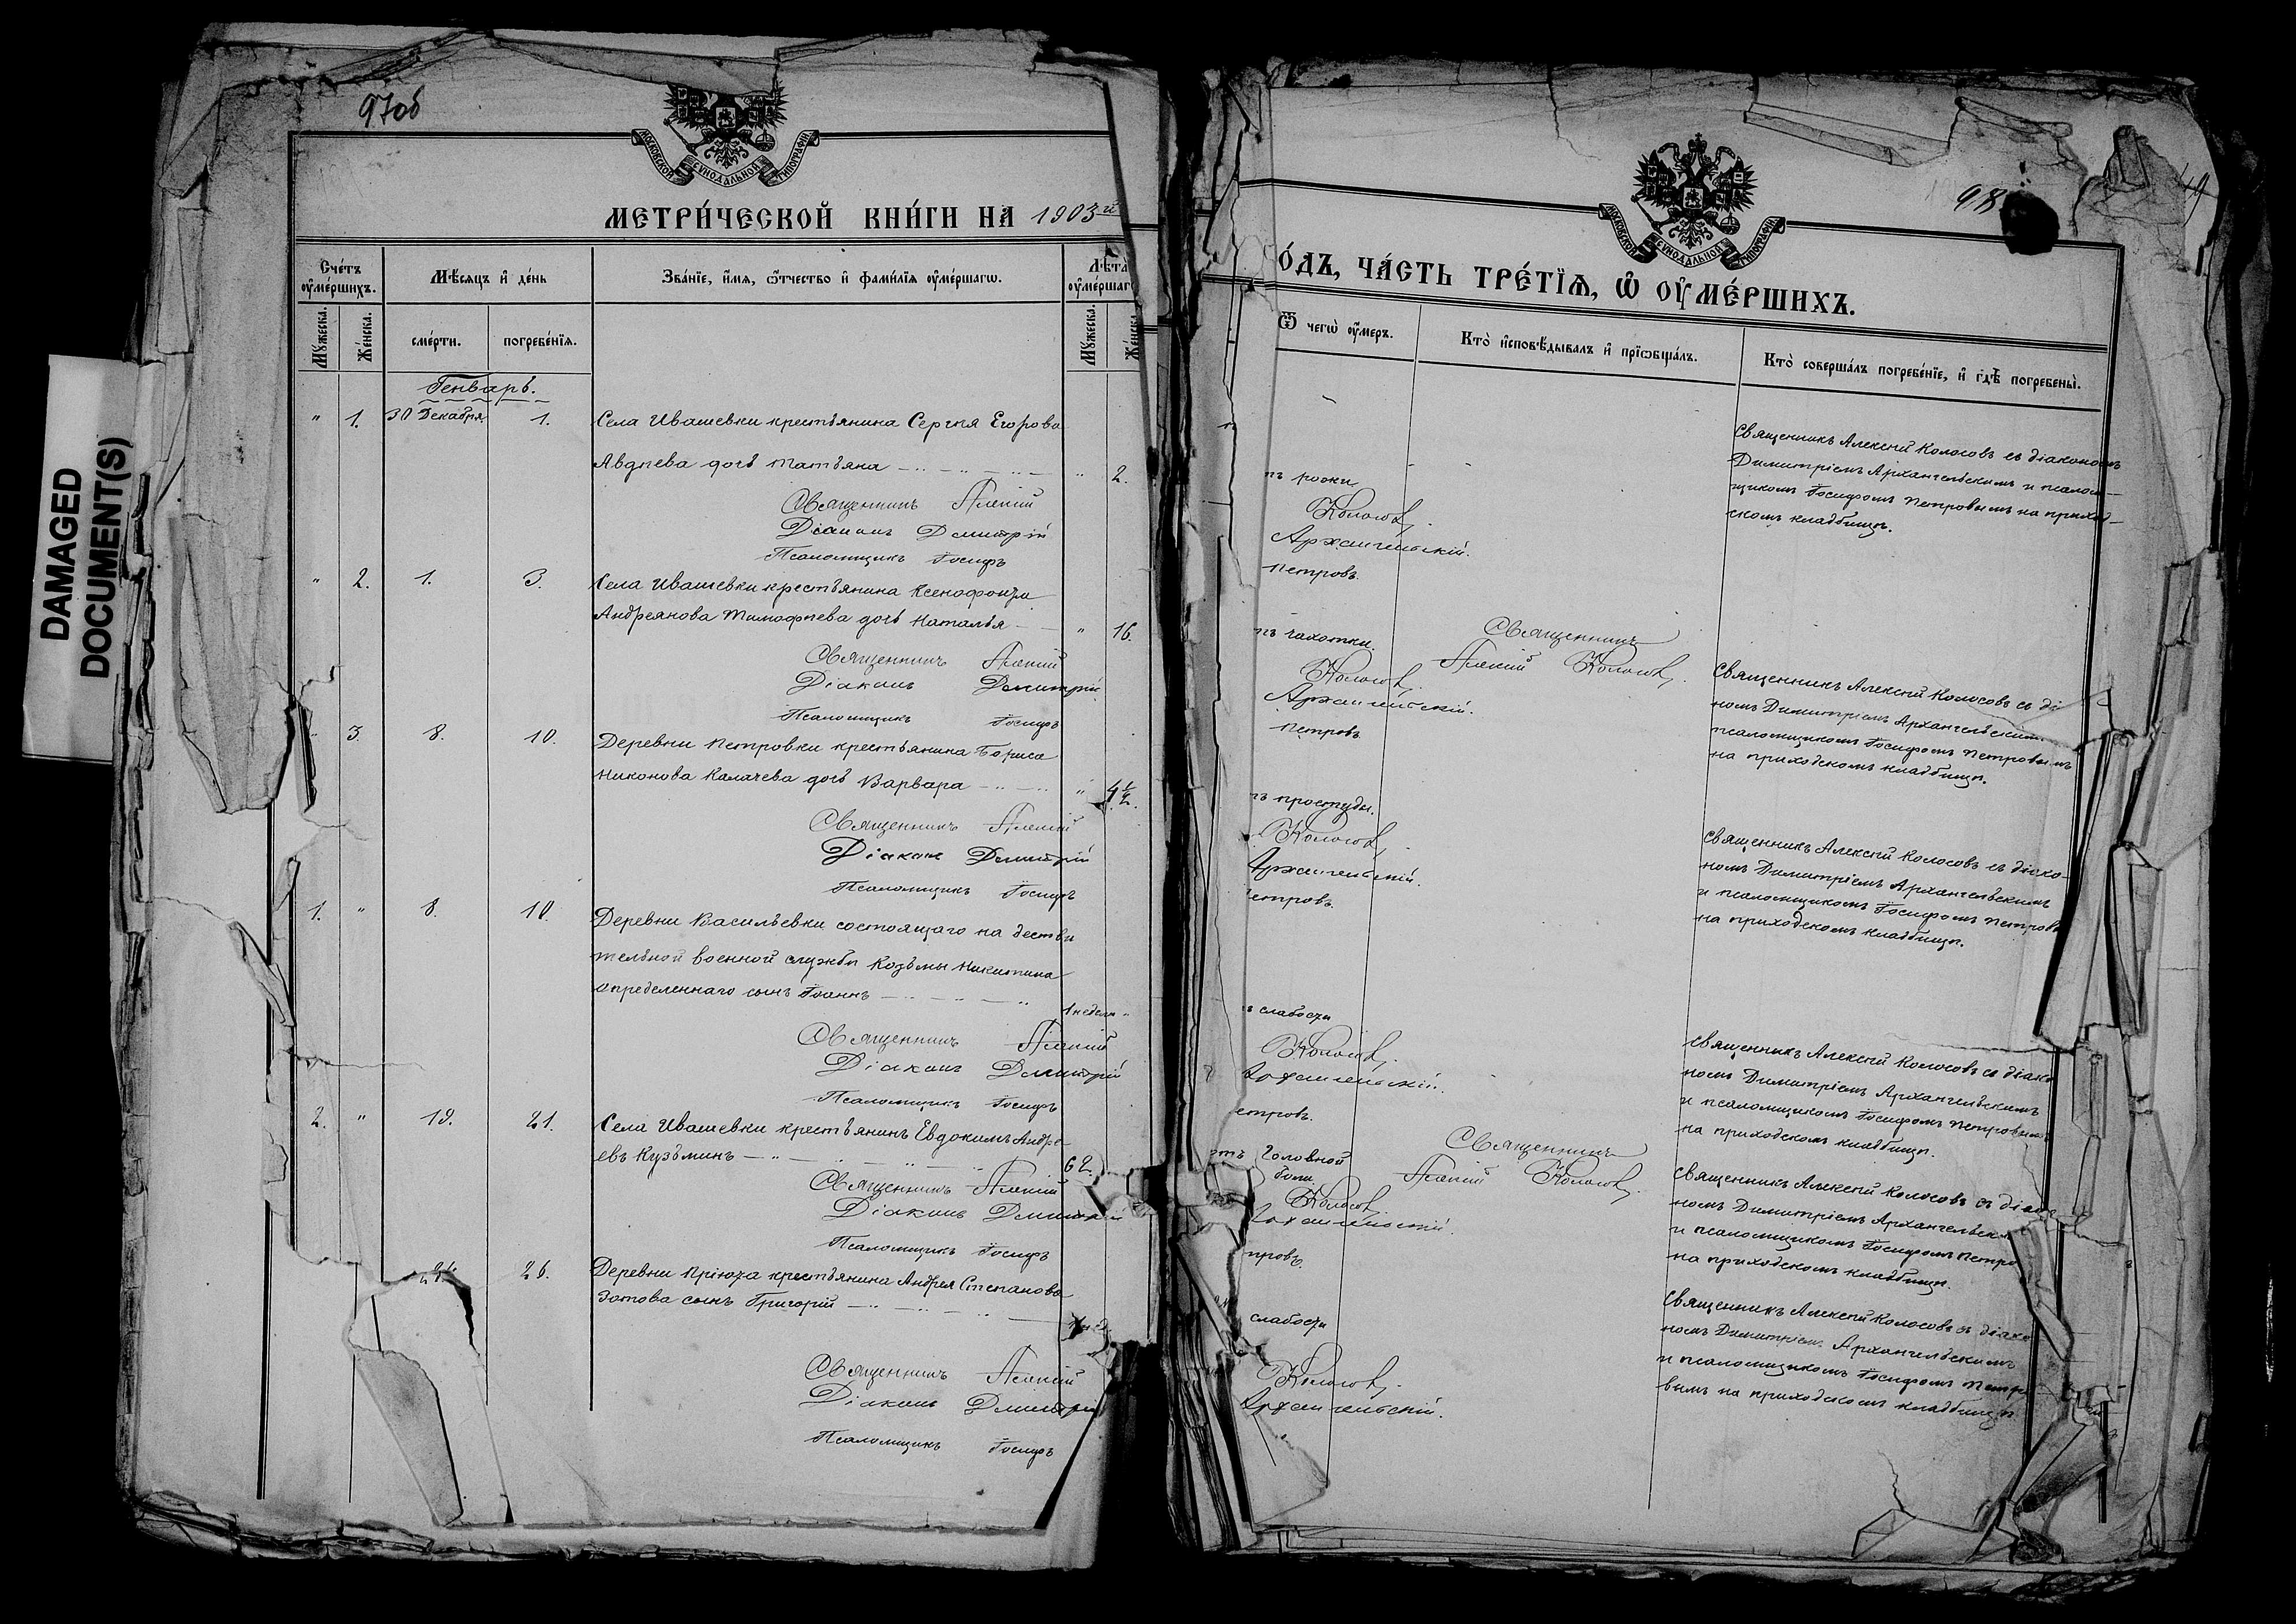 97об
МОСКОВСКОЙ СѴНОДАЛЬНОЙ ТИПОГРАФІИ
МЕТРИ́ЧЕСКОЙ КНИ́ГИ НА 1903й
Сче́тъ ѹ҆ме́ршихъ.
Мѣ́сяцъ и҆ де́нь
Зва́нїе, и҆́мя, ѻ҆́тчество и҆ фами́лїя ѹ҆ме́ршагѡ.
Лѣ́та ѹ҆ме́ршаг
Мꙋ́жеска.
Же́нска.
сме́рти.
погребе́нїя.
Мꙋ́жеска.
Же́нска.
Генварь.
" 1. 30 Декабря 1. Села Ивашевки крестьянина Сергѣя Егорова
Авдѣева дочь Татьяна " 2.
Священникъ Алексій
Діаконъ Димитрій
Псаломщикъ Іосифъ
" 2. 1. 3. Села Ивашевки крестьянина Ксенофонта
Андреянова Тимофѣева дочь Наталья " 16.
Священникъ Алексій
Діаконъ Димитрій
Псаломщикъ Іосифъ
3. 8. 10. Деревни Петровки крестьянина Бориса
Никонова Калачева дочь Варвара "
Священникъ Алексій
Діаконъ Димитрій
Псаломщикъ Іосифъ
1. " 8. 10. Деревни Васильевки состоящаго на дестви
тельной военной службѣ Козьмы Никитина
Определеннаго сынъ Іоаннъ 1 недели "
Священникъ Алексій
Діаконъ Димитрій
Псаломщикъ Іосифъ
2. " 19. 21. Села Ивашевки крестьянинъ Евдокимъ Андре-
евъ Кузьминъ 62.
Священникъ Алексій
Діаконъ Димитрій
Псаломщикъ Іосифъ
26. Деревни Пріюта крестьянина Андрея Степанова
Зотова сынъ Григорій
Священникъ Алексій
Діаконъ Димитрій
Псаломщикъ Іосифъ
DAMAGED
DOCUMENT(S)
98
МОСКОВСКОЙ СѴНОДАЛЬНОЙ ТИПОГРАФІИ
О́ДЪ, ЧА́СТЬ ТРЕ́ТЇѦ, Ѽ ОУ҆МЕ́РШИХЪ.
Ѿ чегѡ̀ ѹ҆́меръ.
Кто̀ и҆сповѣ́дывалъ и҆ прїѡбща́лъ.
Кто̀ соверша́лъ погребе́нїе, и҆ гдѣ̀ погребены̀.
тъ рожи
Колосовъ.
Архангельскій.
Петровъ.
Священникъ Алексѣй Колосовъ съ діакономъ
Димитріемъ Архангельскимъ и псалом-
щикомъ Іосифомъ Петровымъ на приход-
скомъ кладбищѣ.
тъ чахотки.
Колосовъ.
Архангельскій.
Петровъ
Священникъ
Алексій Колосовъ.
Священникъ Алексѣй Колосовъ съ ді
номъ Димитріемъ Архангельскимъ
псаломщикомъ Іосифомъ Петровымъ
на приходскомъ кладбищѣ.
тъ простуды.
Колосовъ
Архангельскій.
етровъ.
Священникъ Алексѣй Колосовъ съ діако-
номъ Димитріемъ Архангельскимъ
и псаломщикомъ Іосифомъ Петров
на приходскомъ кладбищѣ.
ъ слабости
Колосовъ.
Архангельскій.
етровъ.
Священникъ Алексѣй Колосовъ съ діако
номъ Димитріемъ Архангельскимъ
и псаломщикомъ Іосифомъ Петровымъ
на приходскомъ кладбищѣ.
отъ головной
боли
Колосовъ.
Архангельскій.
тровъ.
Священникъ
Алексій Колосовъ.
Священникъ Алексѣй Колосовъ съ діак
номъ Димитріемъ Архангельск
и псаломщикомъ Іосифомъ Петро
на приходскомъ кладбищѣ.
слабости
Колосовъ.
Архангельскій.
Священникъ Алексѣй Колосовъ съ діако
номъ Димитріемъ Архангельскимъ
и псаломщикомъ Іосифомъ Петро
вымъ на приходскомъ кладбищѣ.